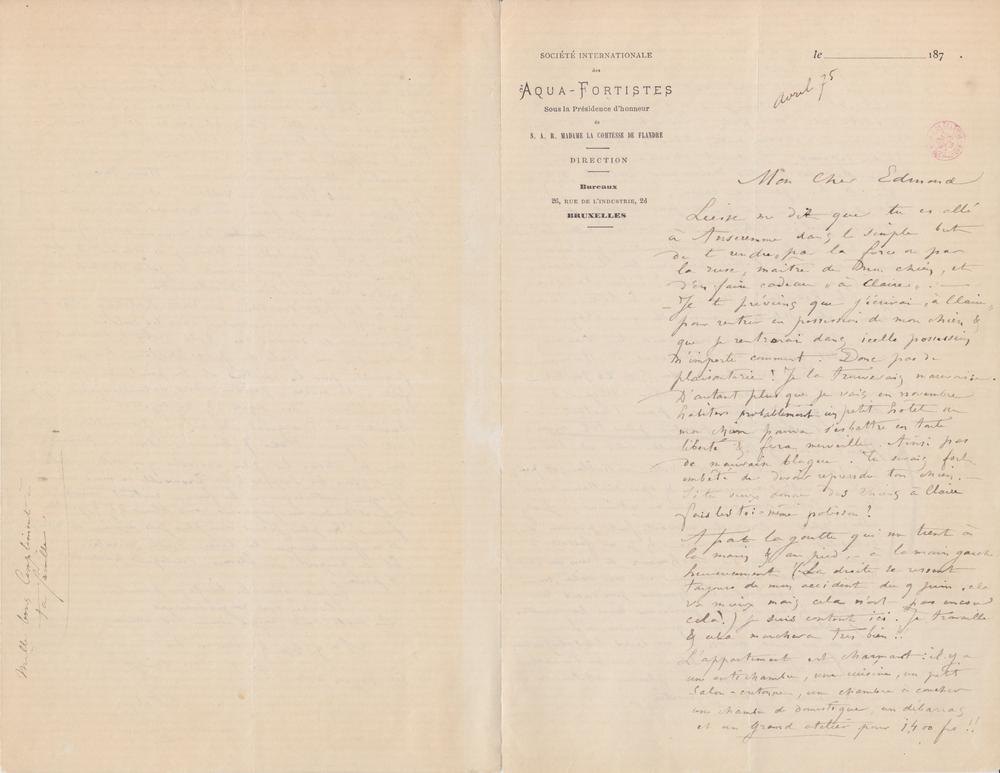 SOCIÉTÉ INTERNATIONALE
des
AQUA-FORTISTES
Sous la Présidence d'honneur
de
S. A. R. MADAME LA COMTESSE DE FLANDRE
DIRECTION
Bureaux
26, RUE DE L'INDUSTRIE, 26
BRUXELLES
le 187 .
avril 75
Mon Cher Edmond
me dit que tu es allé
à Anseremme dans le simple but
de te rendre, par la force ou par
la ruse, maître de mon chien, et
d'en faire cadeau à Claire.
– Je te préviens que j'écrirai à Claire
pour rentrer en possession de mon chien &
que je rentrerai dans icelle possession
n'importe comment. Donc pas de
plaisanterie ! Je la trouverais mauvaise.
D'autant plus que je vais en novembre
habiter probablement un petit hotel où
mon chien pourra s'esbattre en toute
liberté & fera merveille. Ainsi pas
de mauvaise blague. Tu serais fort
embêté de devoir reprendre ton chien. –
Si tu veux donner des chiens à Claire
fais les toi-même polisson ?
A part la goutte qui me tient à
la main & au pied – à la main gauche
heureusement (La droite se ressent
toujours de mon accident du 9 juin, cela
va mieux mais cela n'est pas encore
cela !) je suis content ici. Je travaille
& cela marchera très bien !.
L'appartement est charmant : il y a
une antichambre, une cuisine, un petit
salon – une chambre à coucher
une chambre de domestique, un débarras
et un Grand atelier pour 1400 frs !!
Mille bons compliments à
ta famille.